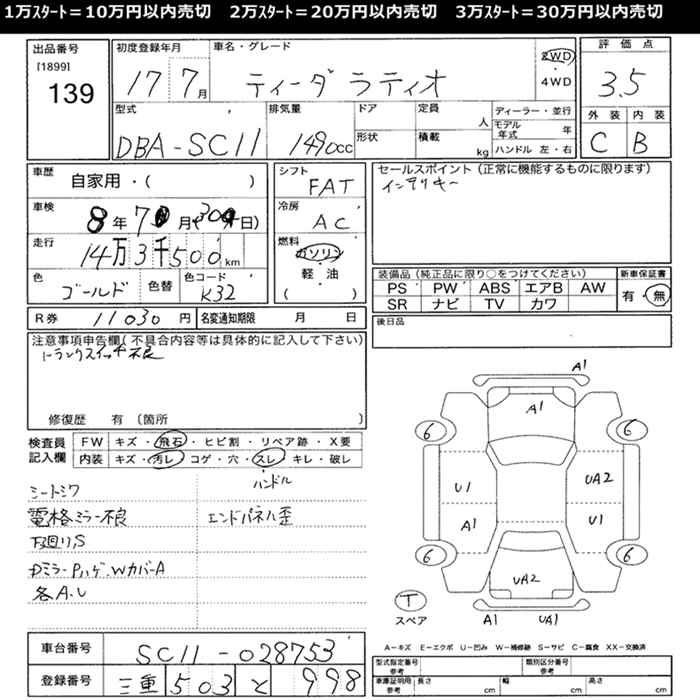 1万ｽﾀｰﾄ＝10万円以内売切　2万ｽﾀｰﾄ＝20万円以内売切　3万ｽﾀｰﾄ＝30万円以内売切
出品番号
[1899]
139
初度登録年月
17 7月
車名・グレード
ティーダ ラティオ
2WD
4WD
評価点
3.5
外装 内装
C B
型式
DBA-SC11
排気量
1490cc
ドア
形状
定員
人
積載
kg
ディーラー・並行
モデル年式 年
ハンドル 左・右
車歴
自家用・( )
車検
8年7月(30日)
走行
14万3千500km
色
ゴールド
色替
色コード
K32
シフト
FAT
冷房
AC
燃料
ガソリン
軽・油
( )
セールスポイント(正常に機能するものに限ります)
インテリキー
装備品(純正品に限り○をつけてください)
PS PW ABS エアB AW
SR ナビ TV カワ
新車保証書
有・無
R券 11030円
名変通知期限 月 日
後日品
注意事項申告欄(不具合内容等は具体的に記入して下さい)
トランクスイッチ不良
修復歴 有 〔箇所 〕
検査員記入欄
FW キズ・飛石・ヒビ割・リペア跡・X要
内装 キズ・汚レ・コゲ・穴・スレ・キレ・破レ
ハンドル
シートシワ
電格ミラー不良 エンドパネル歪
下廻りS
DミラーPハゲ、WカバーA
各A.U
車台番号
SC11-028753
登録番号
三重 503 と 998
A1
A1
6 6
U1 UA2
A1 U1
6 6
UA2
T
スペア
A1 UA1
A－キズ E－エクボ U－凹み W－補修跡 S－サビ C－腐食 XX－交換済
型式指定番号 参考
類別区分番号 参考
車庫証明用 参考
長さ cm
幅 cm
高さ cm